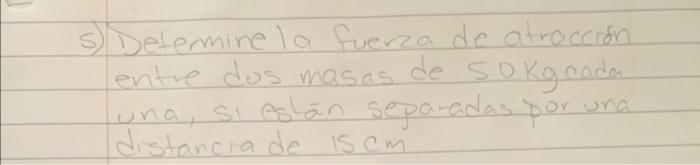 5) Determine la fuerza de atracción
entre dos masas de 5.0 Kg cada
una, si están separadas por una
distancia de 15 cm